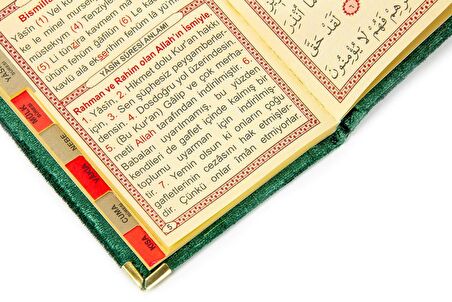 Bismil
Yâsîn (1) Vel ku
ke le minel mursel
(4) Tenzîle
(5) Li tunzira kavmen ma
ûhum fehum gâfilûn (6)
kavlü alâ ekserihim fehum lâ yü'min
YASİN SURESİ ANLAMI
Rahman ve Rahim olan Allah'ın İsmiyle.
1. Yâsîn. 2. Hikmet dolu Kur'an hakkı
için, 3. Sen şüphesiz peygamberler-
densin. 4. Dosdoğru yol üzerindesin.
5. (Bu Kur'an) Gâlip ve çok merha-
metli Allah tarafından indirilmiştir. 6.
Babaları uyarılmamış, bu yüzden
kendileri de gaflet içinde kalmış bir
toplumu uyarman için indirilmiş-
tir. 7. Yemin olsun ki onların çoğu
gafletlerinin cezasını hak etmişler-
dir. Çünkü onlar îman etmiyorlar.
5
YASİN
MÜLK
NEBE
VAKIA
CUMA
KISA
لَقَدْ حَقَّ
فَهُمْ لَا يُؤْمِنُونَ